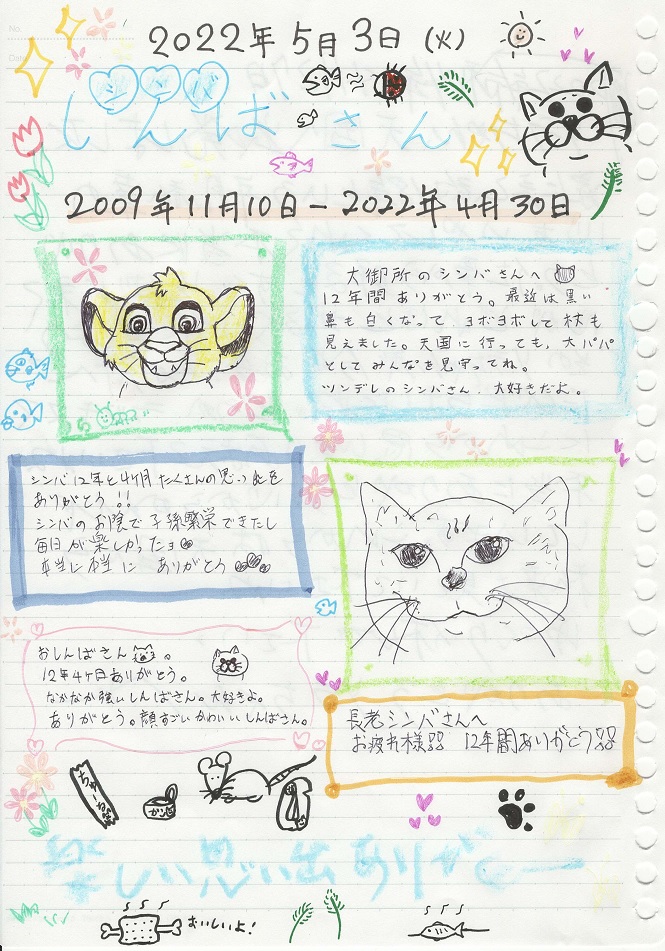 2022年5月3日(火)
シンバ
しんばさん
2009年11月10日-2022年4月30日
大御所のシンバさんへ
12年間ありがとう。最近は黒い
鼻も白くなって、ヨボヨボして杖も
見えました。天国に行っても、大パパ
としてみんなを見守ってね。
ツンデレのシンバさん、大好きだよ。
シンバ12年と4ヶ月たくさんの思い出を
ありがとう!!
シンバのお陰で子孫繁栄できたし
毎日が楽しかったヨ
本当に本当に ありがとう
おしんばさん。
12年4ヶ月ありがとう。
なかなか強いしんばさん。大好きよ。
ありがとう。顔すごいかわいいしんばさん。
長老シンバさんへ
お疲れ様 12年間ありがとう
ちゅーる
楽しい思い出ありがとー
おいしいよ!